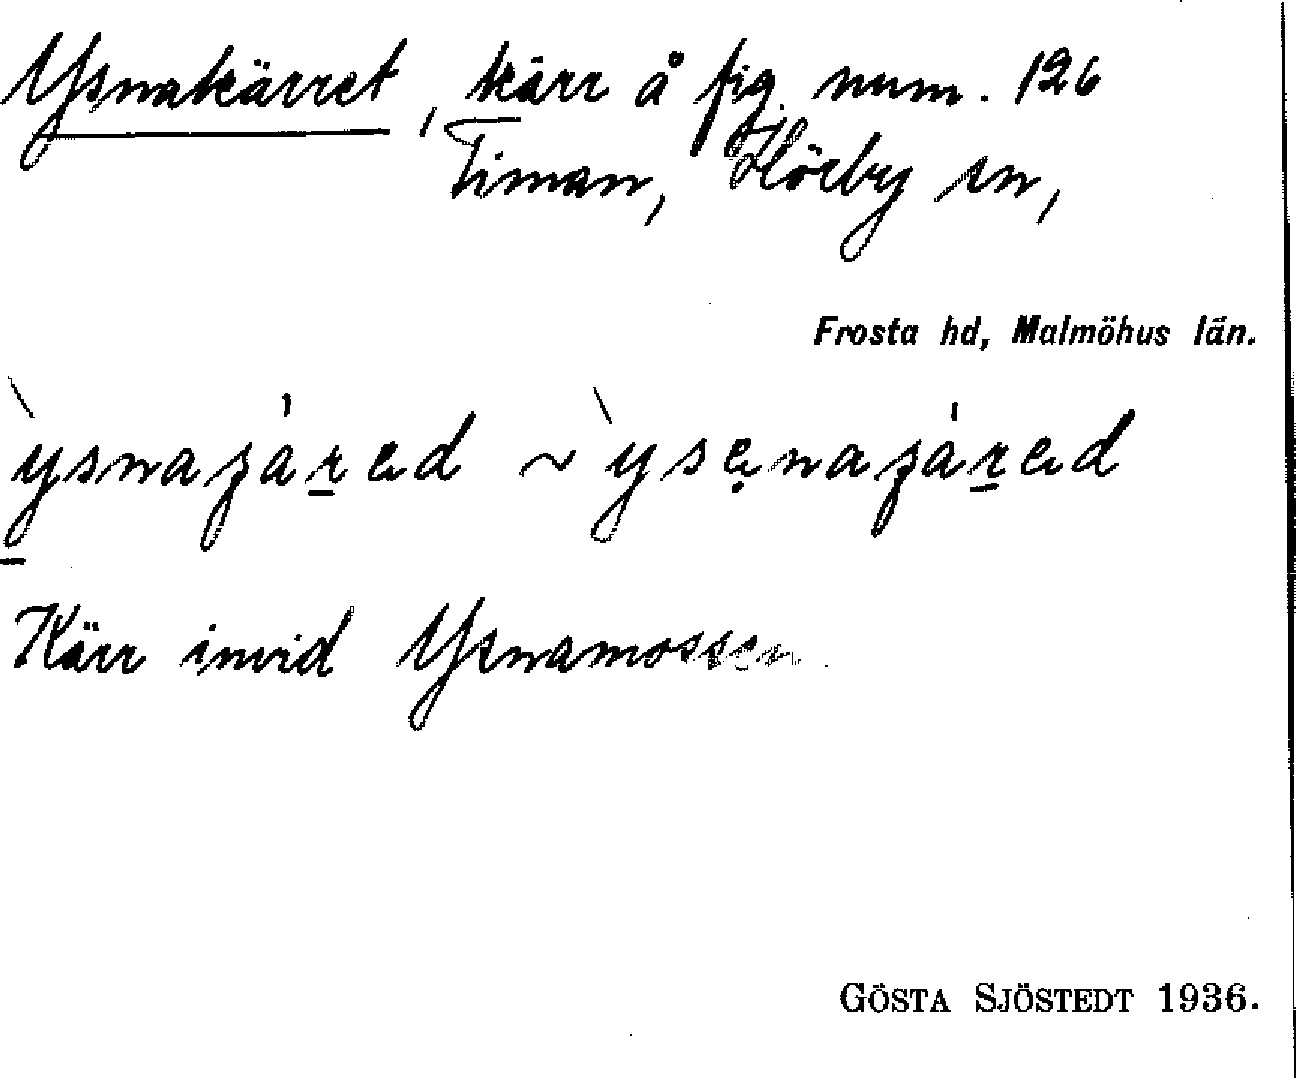 Ysnakärret, kärr å fig. num. 126
Timan, Hörby sn,
Frosta hd, Malmöhus län.
Kärr invid Ysnamossen.
GÖSTA SJÖSTEDT 1936.